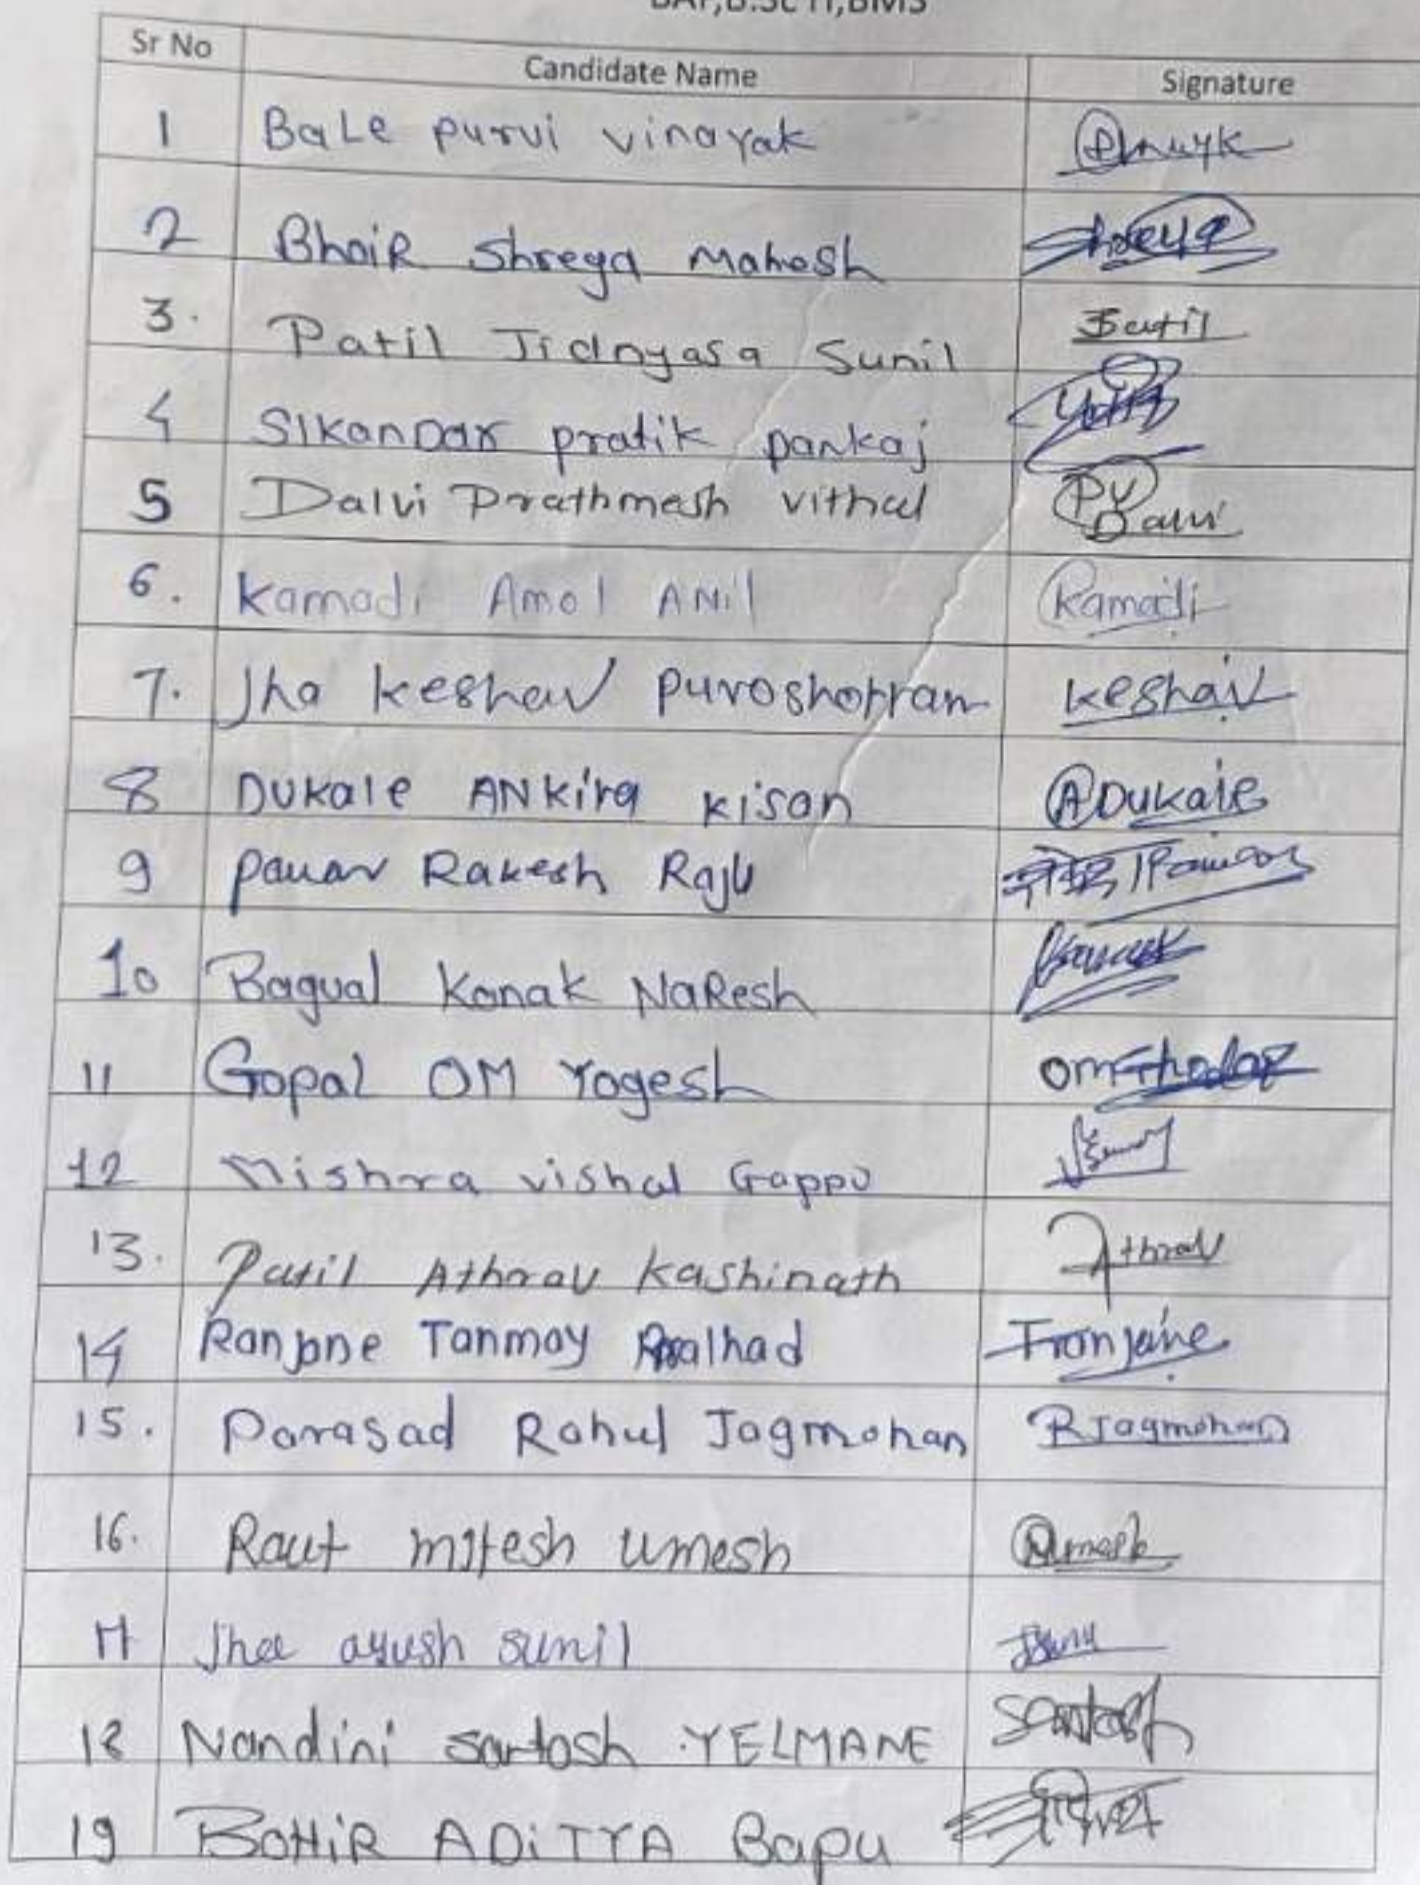 BAF,B.Sc IT,BMS
Sr No Candidate Name Signature
1 BaLe purvi vinayak
2 BhoiR Shreya Mahesh Shreya
3. Patil Jidnyasa Sunil
4 SIKanDar pratik pankaj
5 Dalvi Prathmesh vithal PV Dalvi
6. Kamadi Amol ANil Kamadi
7. Jha keshav Puroshottam keshav
8 DUKale ANkita kisan ADukale
9 Pawar Rakesh Raju Pawar
10 Bagual Kanak NaResh
11 Gopal OM Yogesh om
12 Mishra vishal Gappu
13. Patil Athrav Kashinath Athrav
14 Ranjane Tanmay Pralhad Tranjane
15. Parasad Rahul Jagmohan RJagmohan
16. Raut mitesh Umesh
17 Jha ayush sunil
18 Nandini santosh YELMANE Santosh
19 BOHiR ADiTYA Bapu